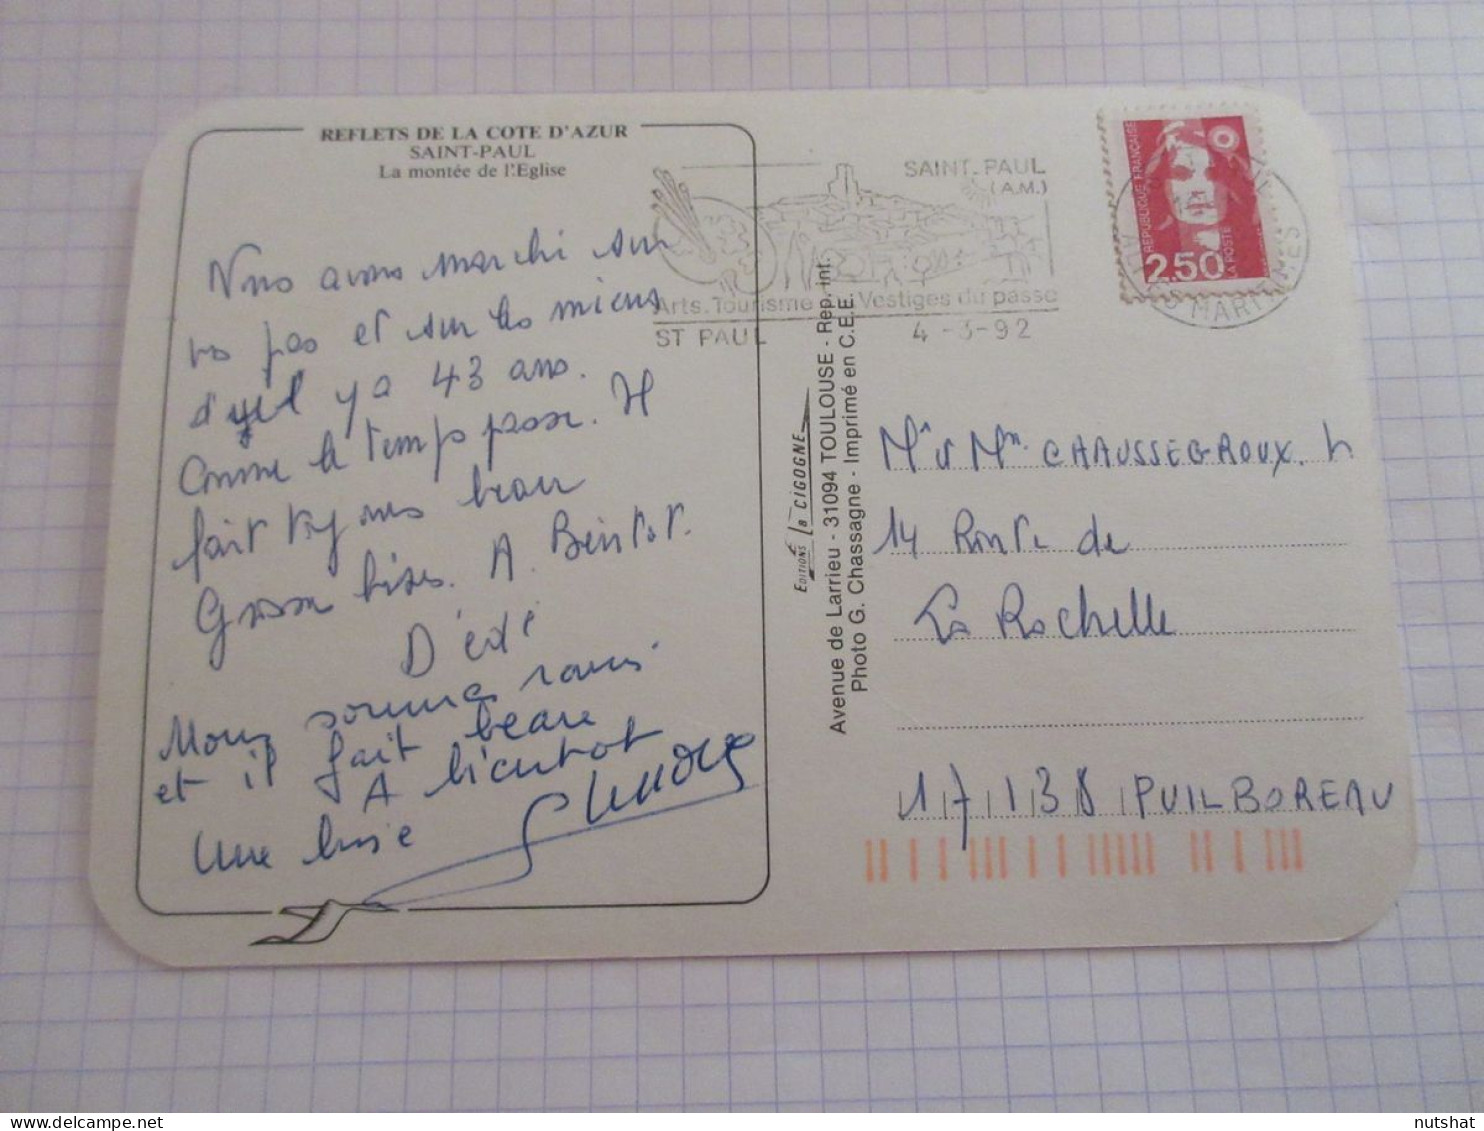 REFLETS DE LA COTE D'AZUR
SAINT-PAUL
La montée de l'Eglise
Nous avons marchi sur
vos pas et sur les miens
d'il y a 43 ans.
Comme le temps passe. Il
fait toujours beau
Grosses bises. A Bientot.
Nous sommes ravis
et il fait beau
A bientot
Une bise
SAINT-PAUL
(A.M.)
Arts. Tourisme Vestiges du passe
ST PAUL 4-3-92
REPUBLIQUE FRANÇAISE
2,50
LA POSTE
MARITIMES
EDITIONS la CIGOGNE
Avenue de Larrieu - 31094 TOULOUSE - Rep. int.
Photo G. Chassagne - Imprimé en C.E.E.
Mr & Mme CHAUSSEGROUX. h
14 Route de
La Rochelle
17138 PUILBOREAU
nutshat